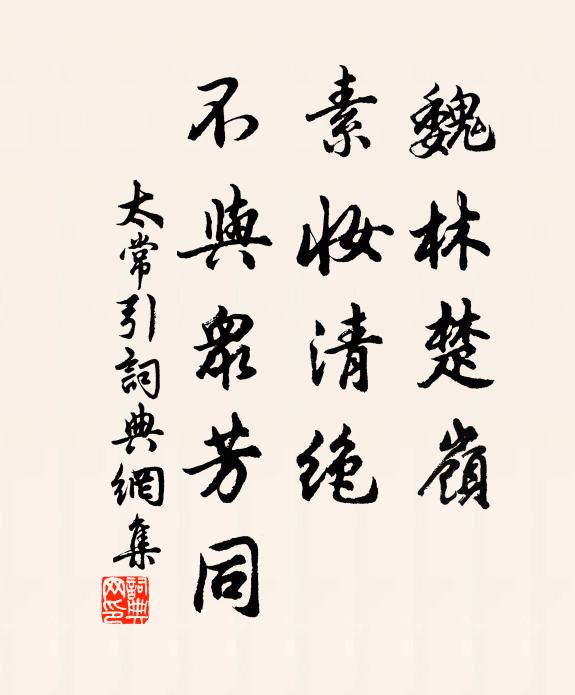 魏林楚嶺
素妝清絶
不與眾芳同
太常引詞典網集
詞典
网印